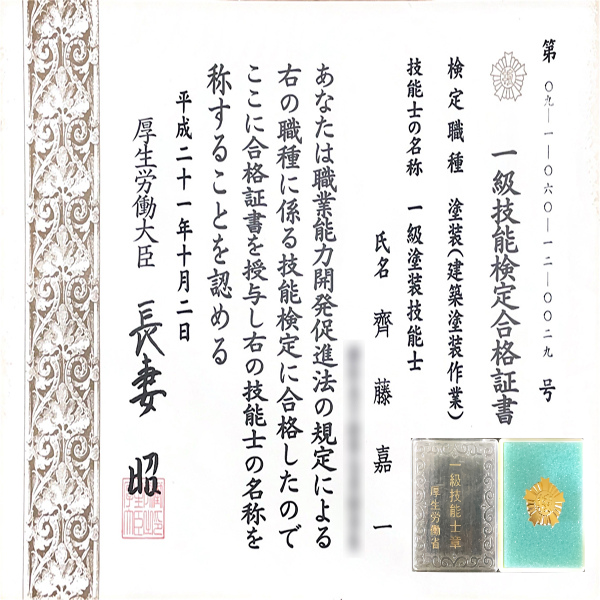 第〇九―一―〇六〇―一二―〇〇二九号
一級技能検定合格証書
検定職種 塗装(建築塗装作業)
技能士の名称 一級塗装技能士
氏名 齊藤嘉一
あなたは職業能力開発促進法の規定による
右の職種に係る技能検定に合格したので
ここに合格証書を授与し右の技能士の名称を
称することを認める
平成二十一年十月二日
厚生労働大臣 長妻昭
一級技能士章
厚生労働省